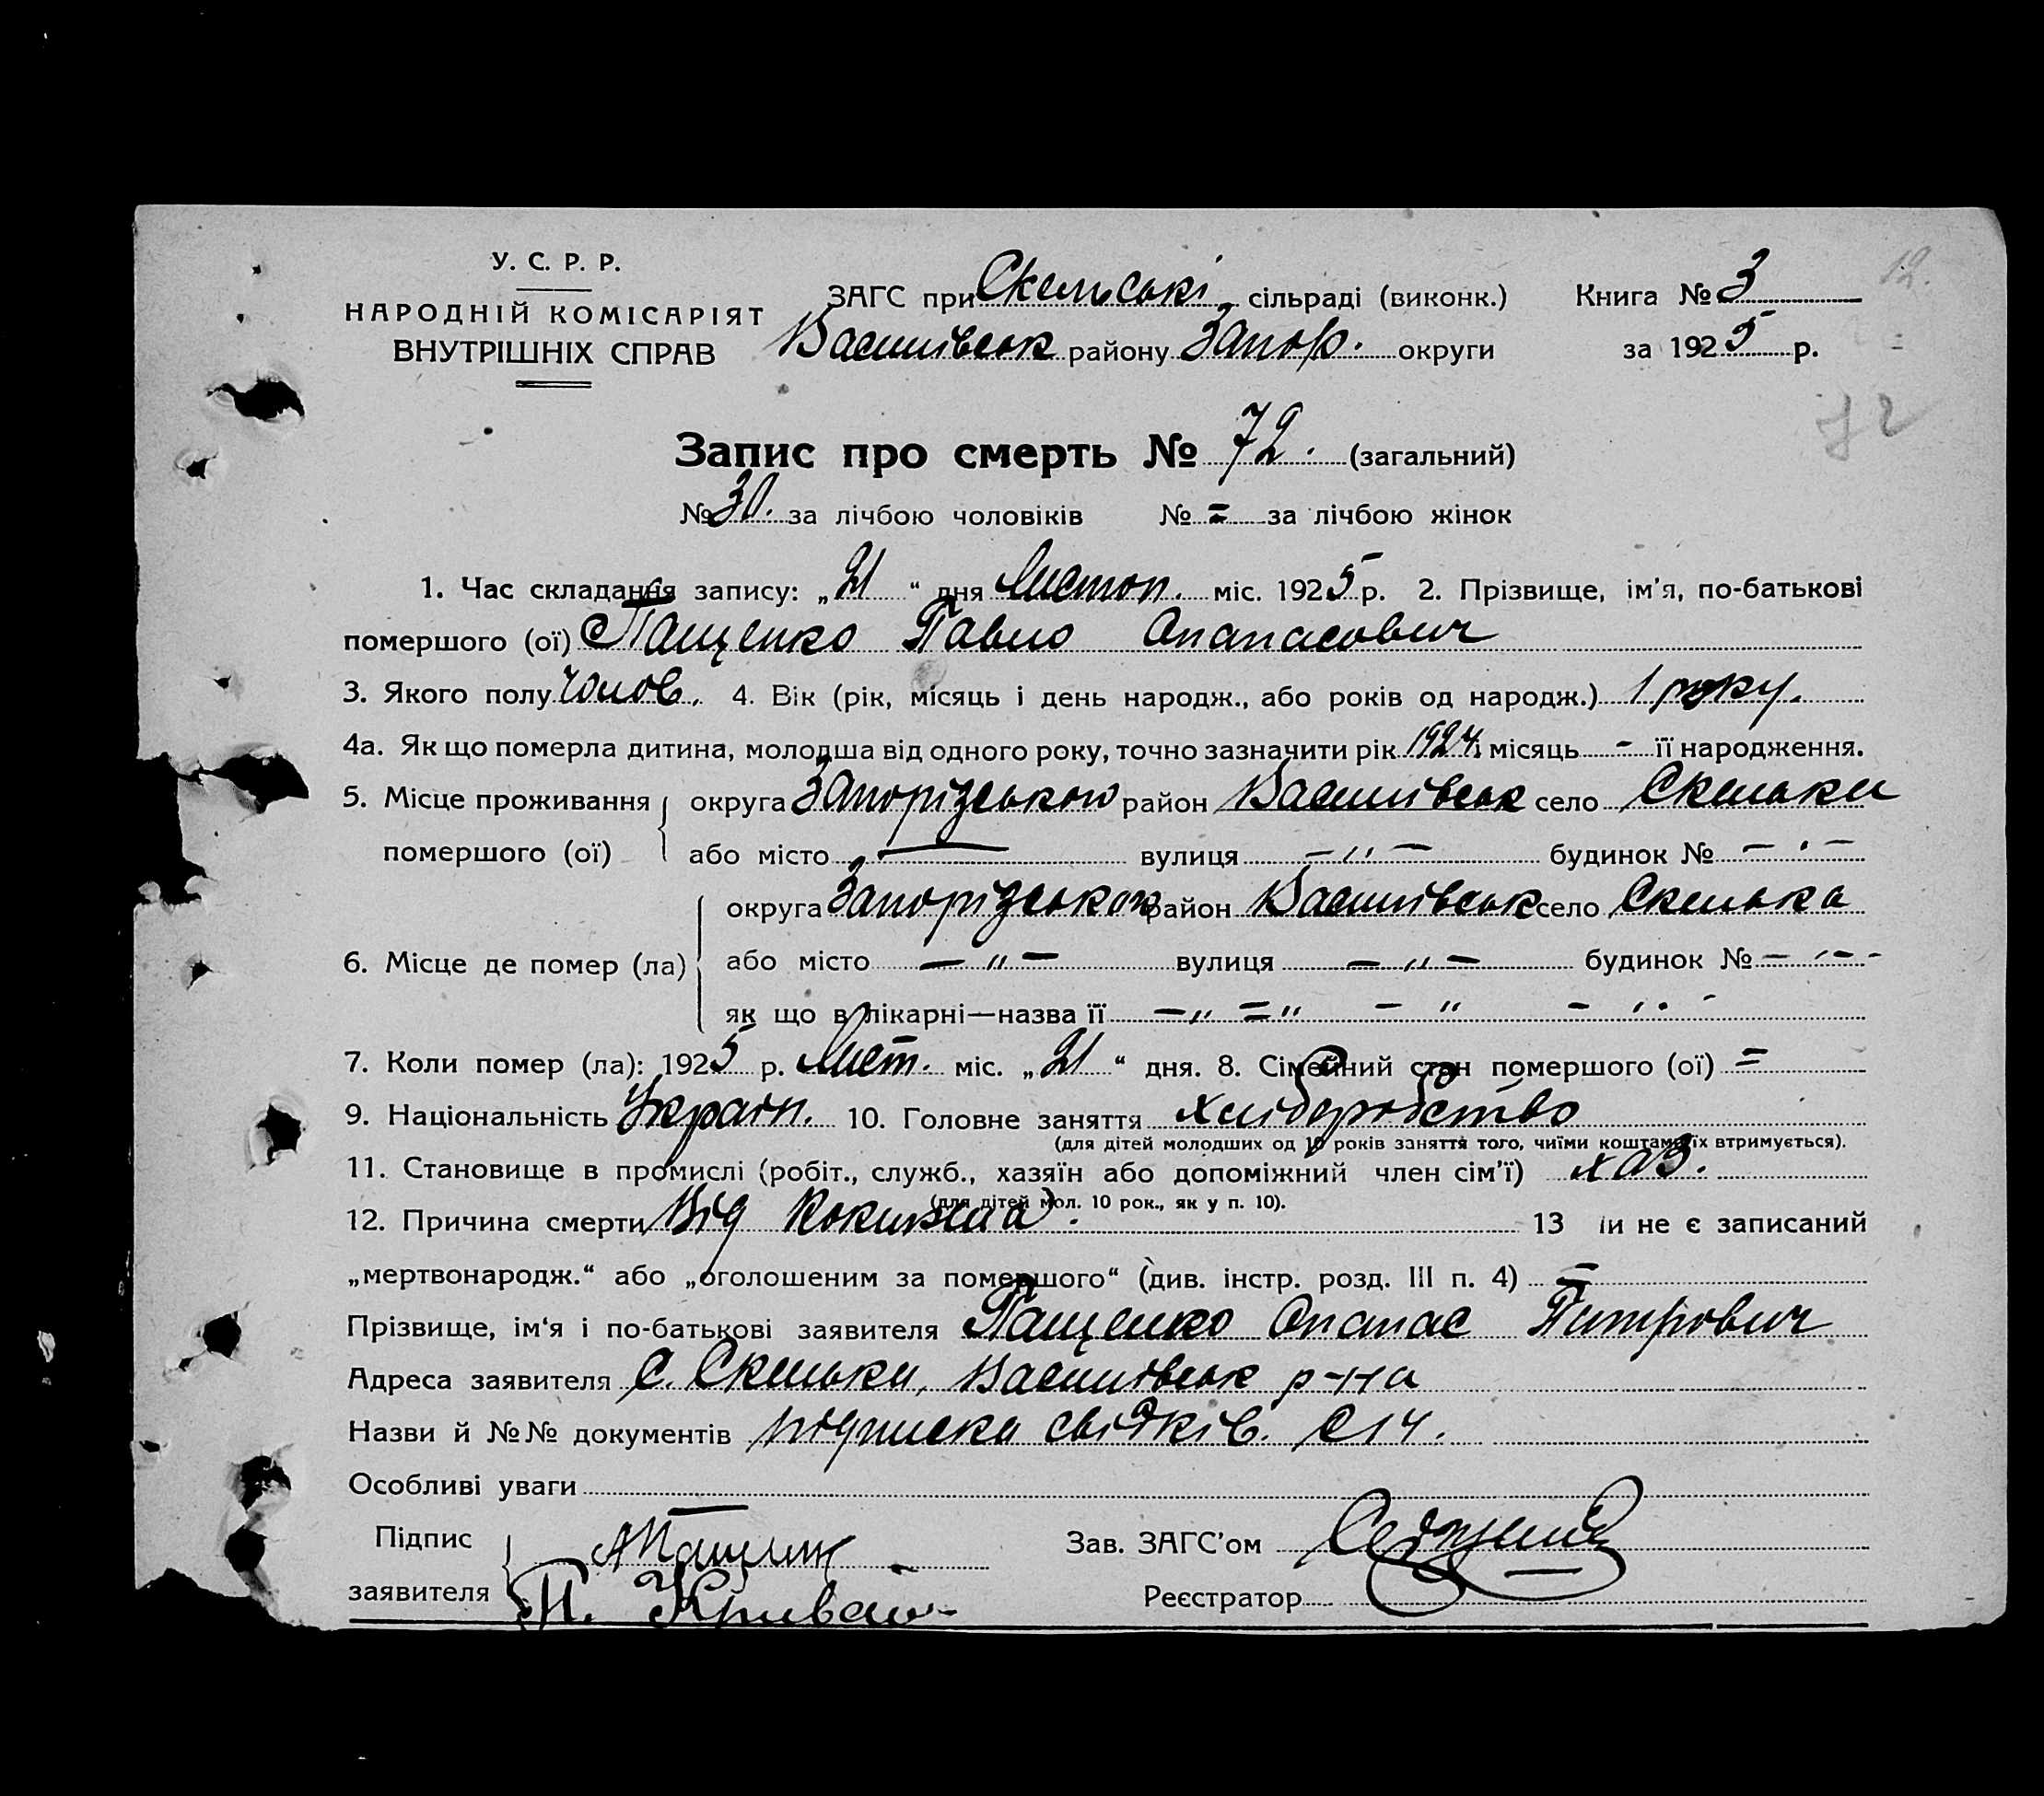 12.
У. С. Р. Р.
НАРОДНІЙ КОМІСАРІЯТ
ВНУТРІШНІХ СПРАВ
ЗАГС при Скельські сільраді (виконк.)
Книга № 3
Василівськ району Запор. округи
за 1925 р.
72
Запис про смерть № 72. (загальний)
№ 30. за лічбою чоловіків № = за лічбою жінок
1. Час складання запису: „21“ дня Листоп. міс. 1925 р. 2. Прізвище, ім'я, по-батькові
помершого (ої) Пащенко Павло Опанасович
3. Якого полу Чолов. 4. Вік (рік, місяць і день народж., або років од народж.) 1 року.
4а. Як що померла дитина, молодша від одного року, точно зазначити рік 1924 і місяць - її народження.
5. Місце проживання помершого (ої) округа Запорізькою район Василівськ село Скельки
або місто — вулиця -„- будинок № - . -
6. Місце де помер (ла) округа Запорізькою район Василівськ село Скелька
або місто -„- вулиця -„- будинок № -„--
як що в лікарні—назва її -„ =„ - „ - „ . -
7. Коли помер (ла): 1925 р. Лист. міс. „21“ дня. 8. Сімейний стан помершого (ої) =
9. Національність Україн. 10. Головне заняття хліборобство
(для дітей молодших од 10 років заняття того, чиїми коштами їх втримується).
11. Становище в промислі (робіт., служб., хазяїн або допоміжний член сім'ї) хаз.
(для дітей мол. 10 рок., як у п. 10).
12. Причина смерти Від Коклюша. 13 и не є записаний
„мертвонародж.“ або „оголошеним за помершого“ (див. інстр. розд. III п. 4) =
Прізвище, ім'я і по-батькові заявителя Пащенко Опанас Питрович
Адреса заявителя с. Скельки, Василівськ р-на
Назви й №№ документів підписка свідків.
Особливі уваги
Підпис заявителя
П. Кривай
Зав. ЗАГС'ом
Реєстратор